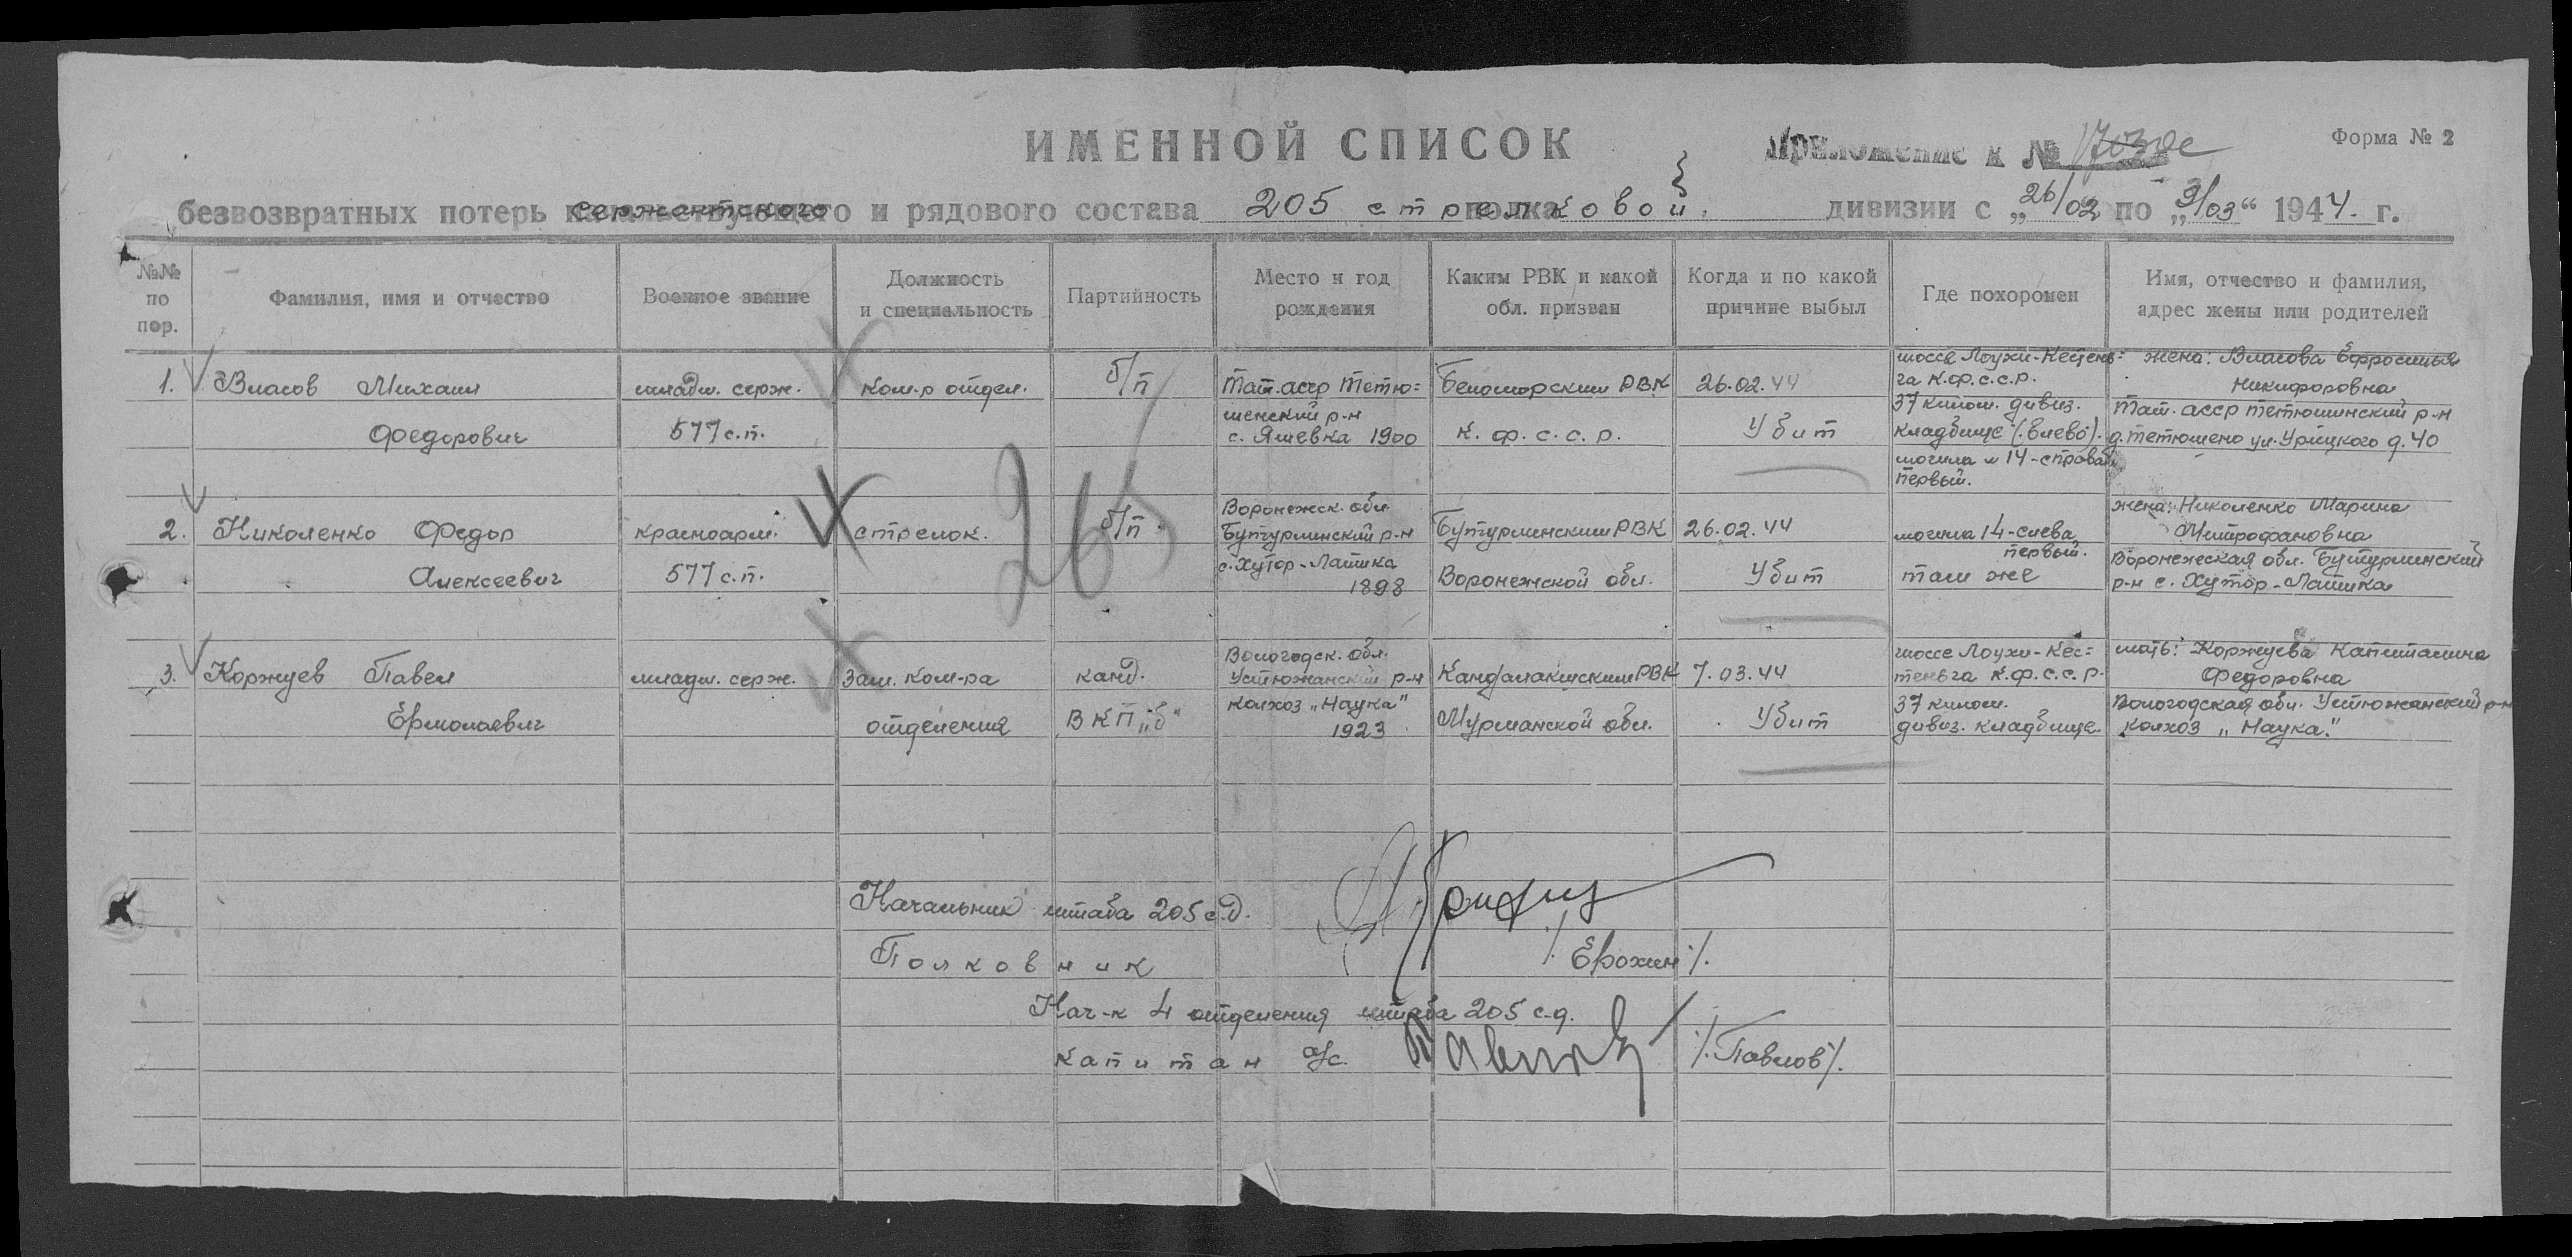 ИМЕННОЙ СПИСОК
Приложение к №
Форма № 2
безвозвратных потерь сержантского и рядового состава 205 стрелковой дивизии с „26/02 по „9/03“ 1944. г.
№№ по пор.
Фамилия, имя и отчество
Военное звание
Должность и специальность
Партийность
Место и год рождения
Каким РВК и какой обл. призван
Когда и по какой причине выбыл
Где похоронен
Имя, отчество и фамилия, адрес жены или родителей
1.
Власов Михаил
Федорович
младш. серж.
577 с.п.
ком-р отдел.
б/п
Тат. асср Тетю=
шенский р-н
с. Яшевка 1900
Беломорским РВК
К. ф. с. с. р.
26.02.44
Убит
шоссе Лоухи-Кестень=
га К.ф.с.с.р.
37 килом. дивиз.
кладбище (влево).
могила № 14-справа
первый.
жена: Власова Ефросинья
Никифоровна
Тат. асср Тетюшинский р-н
д. Тетюшено ул. Урицкого д. 40
265
2.
Николенко Федор
Алексеевич
красноарм.
577 с.п.
стрелок.
б/п.
Воронежск. обл.
Бутурлинский р-н
с. Хутор-Лапинка
1898
Бутурлинским РВК
Воронежской обл.
26.02.44
Убит
могила 14-слева
первый.
там же
жена: Николенко Марина
Митрофановна
Воронежская обл. Бутурлинский
р-н с. Хутор-Лапинка
3.
Коржуев Павел
Ермолаевич
младш. серж.
Зам. ком-ра
отделения
канд.
ВКП „б“
Вологодск. обл.
Устюжанский р-н
колхоз „Наука“
1923
Кандалакшским РВК
Мурманской обл.
7.03.44
Убит
шоссе Лоухи-Кес=
теньга К.ф.с.с.р.
37 килом.
дивиз. кладбище.
мать: Коржуева Капиталина
Федоровна
Вологодская обл. Устюжанский р-н
колхоз „Наука“
Начальник штаба 205 с.д.
Полковник /Ерохин/.
Нач-к 4 отделения штаба 205 с.д.
капитан а/с. Павлов /Павлов/.